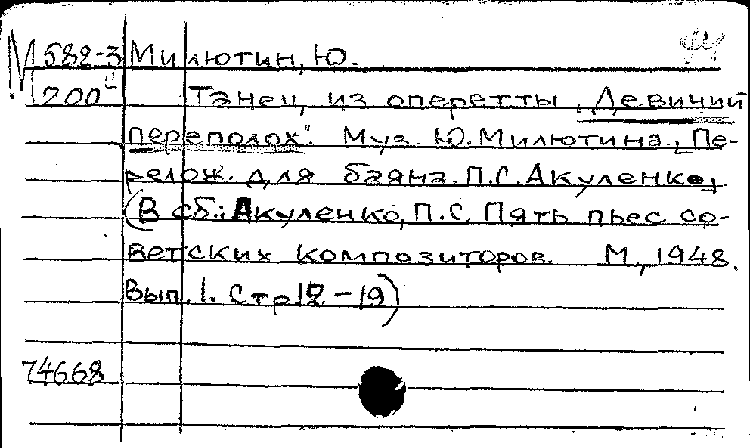 М 582-3 Милютин, Ю.
200 Танец из оперетты „Девичий
переполох". Муз. Ю. Милютина, Пе-
релож. для баяна П.С. Акуленко,
(В сб.: Акуленко, П.С. Пять пьес со-
ветских композиторов. М., 1948.
Вып. 1. Стр. 12-19)
74668